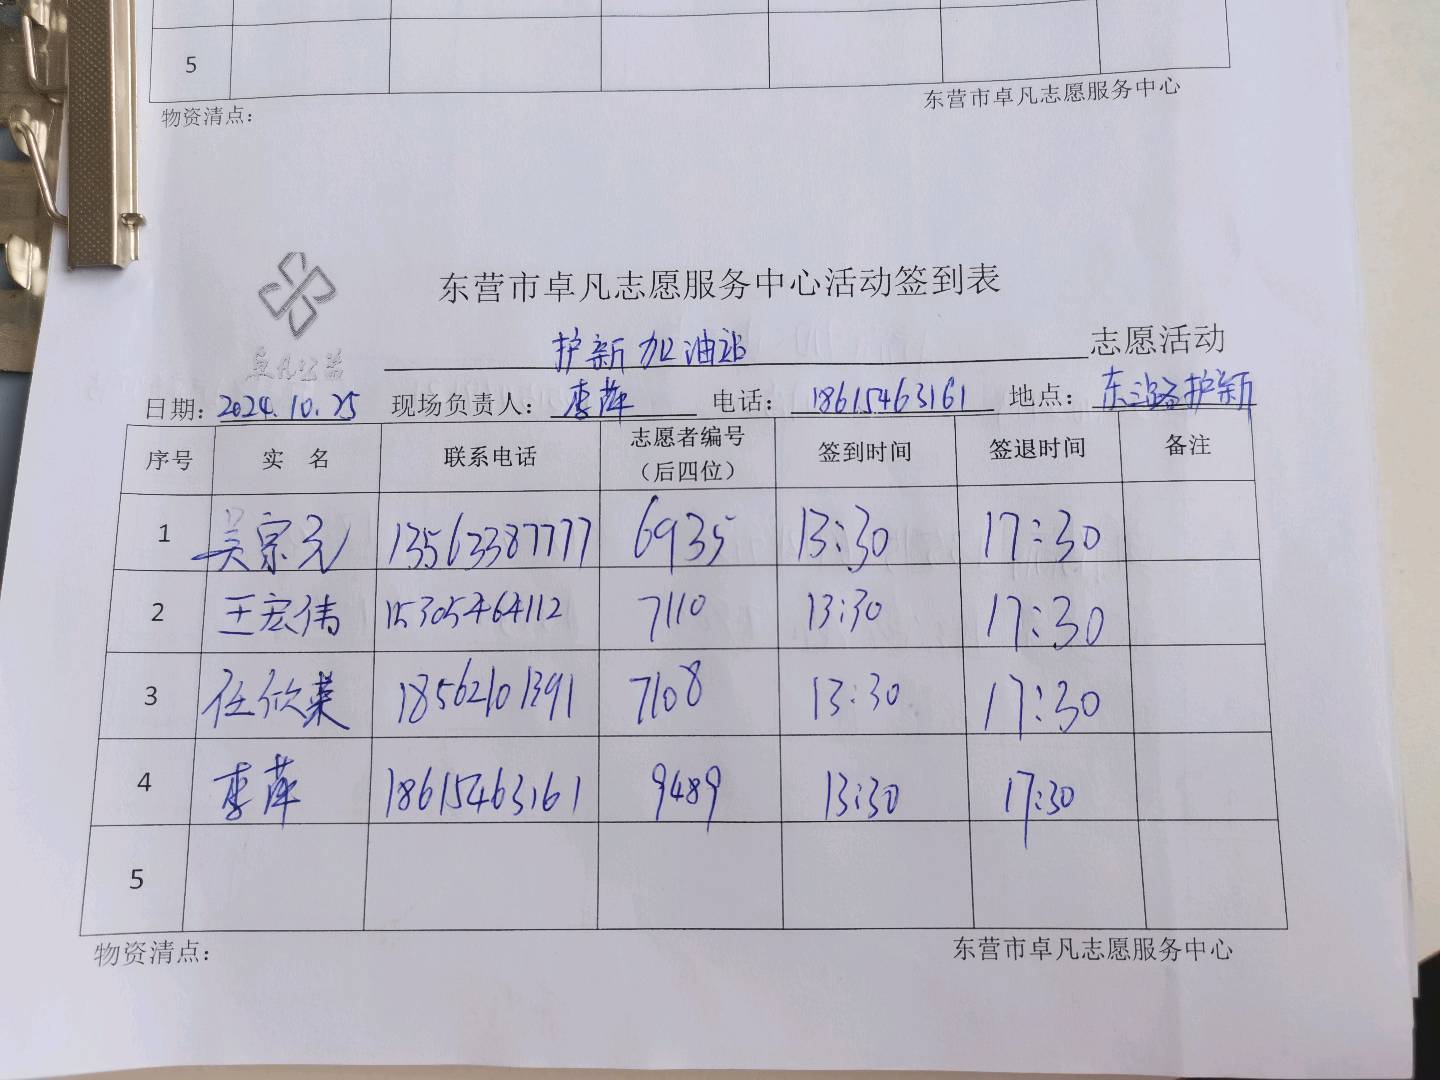 5
物资清点：
东营市卓凡志愿服务中心
东营市卓凡志愿服务中心活动签到表
卓凡公益
护新加油站 志愿活动
日期：2024.10.25 现场负责人：李萍 电话：18615463161 地点：东三路护新
序号 实 名 联系电话 志愿者编号（后四位） 签到时间 签退时间 备注
1 吴宗元 13563387777 6935 13:30 17:30
2 王宏伟 15305464112 7110 13:30 17:30
3 任欣荣 18562101391 7108 13:30 17:30
4 李萍 18615463161 9489 13:30 17:30
5
物资清点：
东营市卓凡志愿服务中心